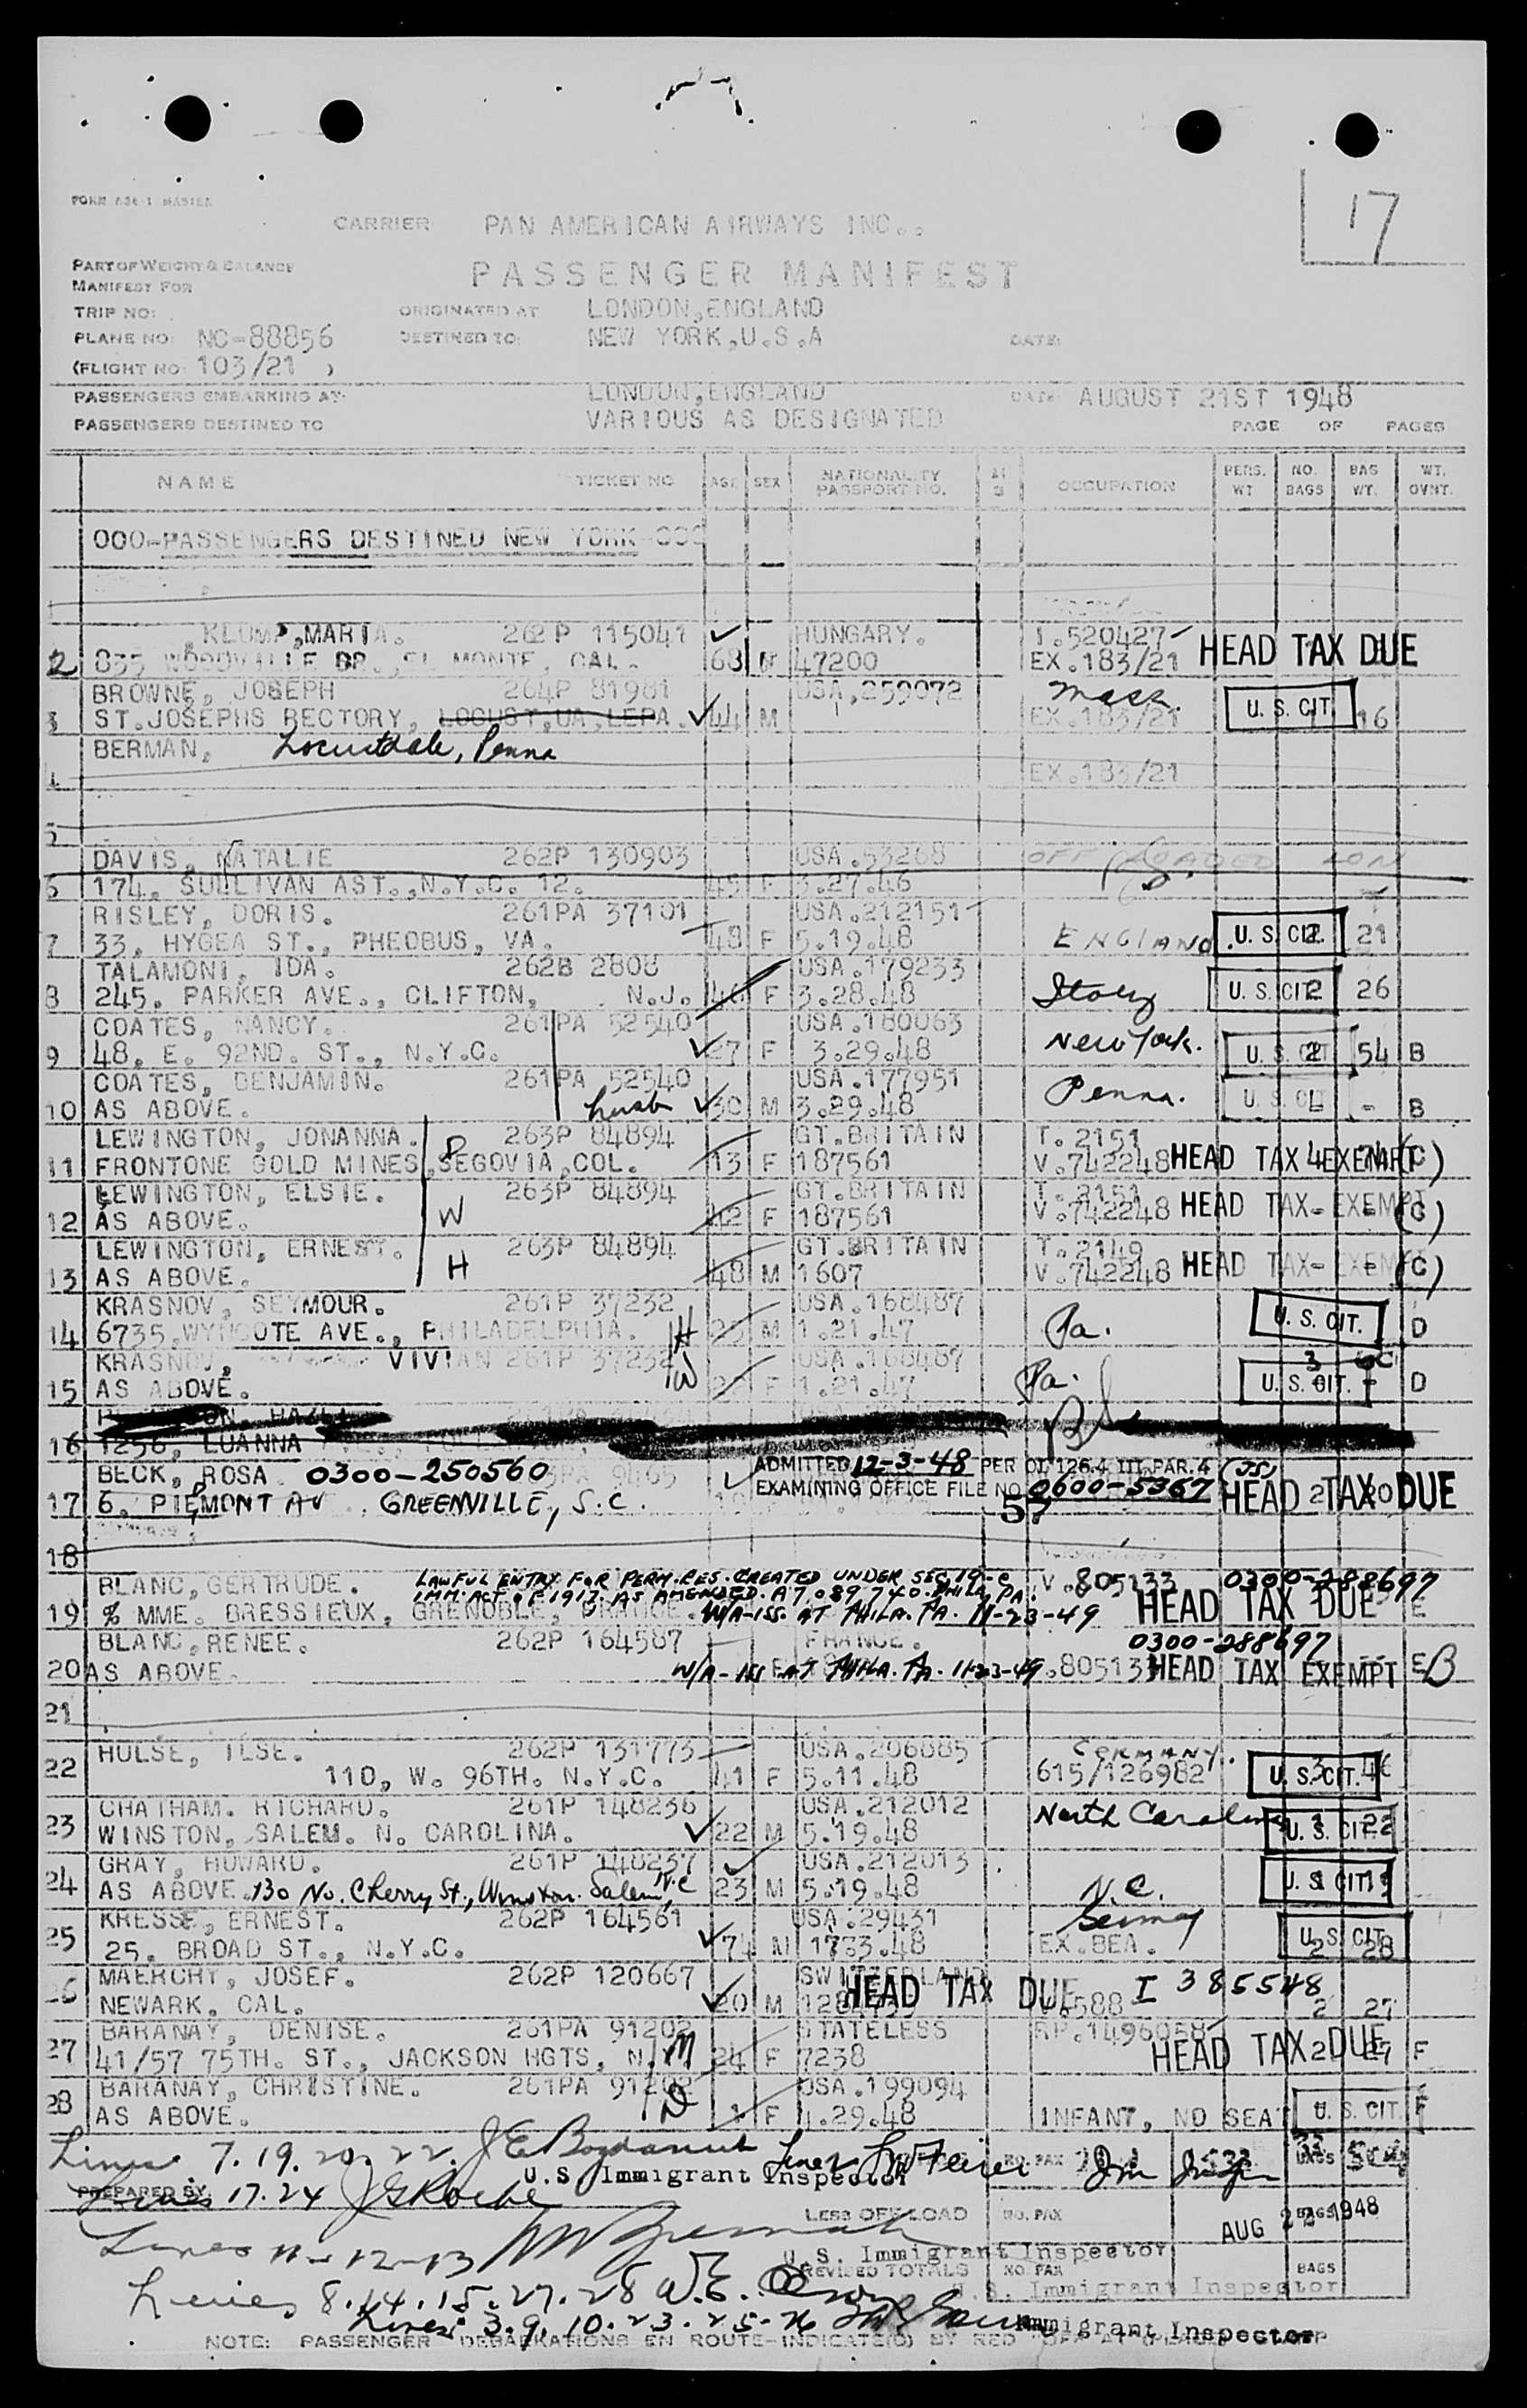 17
FORM 636-1 MASTER
CARRIER PAN AMERICAN AIRWAYS INC..
PART OF WEIGHT & BALANCE
MANIFEST FOR
PASSENGER MANIFEST
TRIP NO: ORIGINATED AT LONDON,ENGLAND
PLANE NO: NC-88856 DESTINED TO: NEW YORK,U.S.A DATE:
(FLIGHT NO: 103/21 )
PASSENGERS EMBARKING AT: LONDON,ENGLAND DATE: AUGUST 21ST 1948
PASSENGERS DESTINED TO VARIOUS AS DESIGNATED PAGE OF PAGES
NAME TICKET NO AGE SEX NATIONALITY PASSPORT NO. OCCUPATION PERS. WT NO. BAGS BAG WT. WT. OVNT.
000-PASSENGERS DESTINED NEW YORK-000
KLUMP,MARIA. 262P 115041 HUNGARY. T.520427
2 835 WOODVILLE DR., EL MONTE, CAL. 68 47200 EX.183/21 HEAD TAX DUE
BROWNE, JOSEPH 264P 81981 USA.259072 Mass.
3 ST.JOSEPHS RECTORY, LOCUST,UA,LEPA. 44 M EX.183/21 U. S. CIT. 16
BERMAN, Locustdale, Penna
4 EX.183/21
5
DAVIS, NATALIE 262P 130903 USA.53268 OFF LOADED LON
6 174. SULLIVAN AST.,N.Y.C. 12. 45 F 3.27.46
RISLEY, DORIS. 261PA 37101 USA.212151
7 33, HYGEA ST., PHEOBUS, VA. 48 F 5.19.48 ENGLAND. U. S. CIT. 2 21
TALAMONI, IDA. 262B 2808 USA.179233
8 245. PARKER AVE., CLIFTON, N.J. 46 F 3.28.48 Italy U. S. CIT. 2 26
COATES, NANCY. 261PA 52540 USA.180063
9 48. E. 92ND. ST., N.Y.C. 27 F 3.29.48 New York. U. S. CIT. 2 54 B
COATES, BENJAMIN. 261PA 52540 USA.177951
10 AS ABOVE. husb 30 M 3.29.48 Penna. U. S. CIT. - B
LEWINGTON, JONANNA. D 263P 84894 GT.BRITAIN T.2151
11 FRONTONE GOLD MINES,SEGOVIA,COL. 13 F 187561 V.742248 HEAD TAX EXEMPT (C)
LEWINGTON, ELSIE. 263P 84894 GT.BRITAIN T.2151
12 AS ABOVE. W 42 F 187561 V.742248 HEAD TAX EXEMPT (C)
LEWINGTON, ERNEST. 263P 84894 GT.BRITAIN T.2149
13 AS ABOVE. H 48 M 1607 V.742248 HEAD TAX EXEMPT (C)
KRASNOV, SEYMOUR. 261P 37232 USA.168487
14 6735.WYNCOTE AVE., PHILADELPHIA. H M 1.21.47 Pa. U. S. CIT. D
KRASNOV, VIVIAN 261P 37232 USA.168487
15 AS ABOVE. W F 1.21.47 Pa. U. S. CIT. D
16 1256, LUANNA
BECK, ROSA 0300-250560 ADMITTED 12-3-48 PER OI 126.4 III PAR. 4 (JS)
17 6. PIEMONT AV GREENVILLE, S.C. EXAMINING OFFICE FILE NO. 0600-5367 HEAD TAX DUE
18
BLANC, GERTRUDE. LAWFUL ENTRY FOR PERM. RES. CREATED UNDER SEC 19-c V.805133 0300-288697
IMM. ACT. OF 1917. AS AMENDED. A7 089 740. PHILA, PA.
19 % MME. BRESSIEUX, GRENOBLE, FRANCE. W/A-ISS. AT PHILA. PA. 11-23-49 HEAD TAX DUE E
BLANC,RENEE. 262P 164587 FRANCE. 0300-288697
20 AS ABOVE. W/A-ISS AT PHILA. PA. 11-23-49 .805133 HEAD TAX EXEMPT E B
21
HULSE, ILSE. 262P 131773 USA.206085 GERMANY.
22 110, W. 96TH. N.Y.C. 41 F 5.11.48 615/126982 U. S. CIT. 3 46
CHATHAM. RICHARD. 261P 148236 USA.212012 North Carolina
23 WINSTON, SALEM. N. CAROLINA. 22 M 5.19.48 U. S. CIT. 22
GRAY, HOWARD. 261P 148237 USA.212013
24 AS ABOVE. 130 No. Cherry St., Winston. Salem, N.C 23 M 5.19.48 N.C. U. S. CIT. 19
KRESSE, ERNEST. 262P 164561 USA.29431 Germany
25 25. BROAD ST., N.Y.C. 74 M EX.BEA. U. S. CIT. 2 28
MAERCHY, JOSEF. 262P 120667 SWITZERLAND
26 NEWARK, CAL. 20 M HEAD TAX DUE I 385548 2 27
BARANAY, DENISE. 261PA 91202 STATELESS RP.1496058
27 41/57 75TH. ST., JACKSON HGTS, N. M 24 F 7238 HEAD TAX DUE 2 27 F
BARANAY, CHRISTINE. 261PA 91202 USA.199094
28 AS ABOVE. D 1 F 1.29.48 INFANT, NO SEAT U. S. CIT. F
Lines 7. 19. 20. 22. Lines NO. PAX BAGS
U.S. Immigrant Inspector
PREPARED BY Lines 17. 24 J G Roche
LESS OFF LOAD NO. PAX AUG 22 1948 BAGS
Lines 11-12-13
U.S. Immigrant Inspector
REVISED TOTALS NO. PAX BAGS
U.S. Immigrant Inspector
Lines 8. 14. 15. 27. 28 W. E.
Lines 3. 9. 10. 23. 25-26
Immigrant Inspector
NOTE: PASSENGER DEBARKATIONS EN ROUTE-INDICATE(O) BY RED